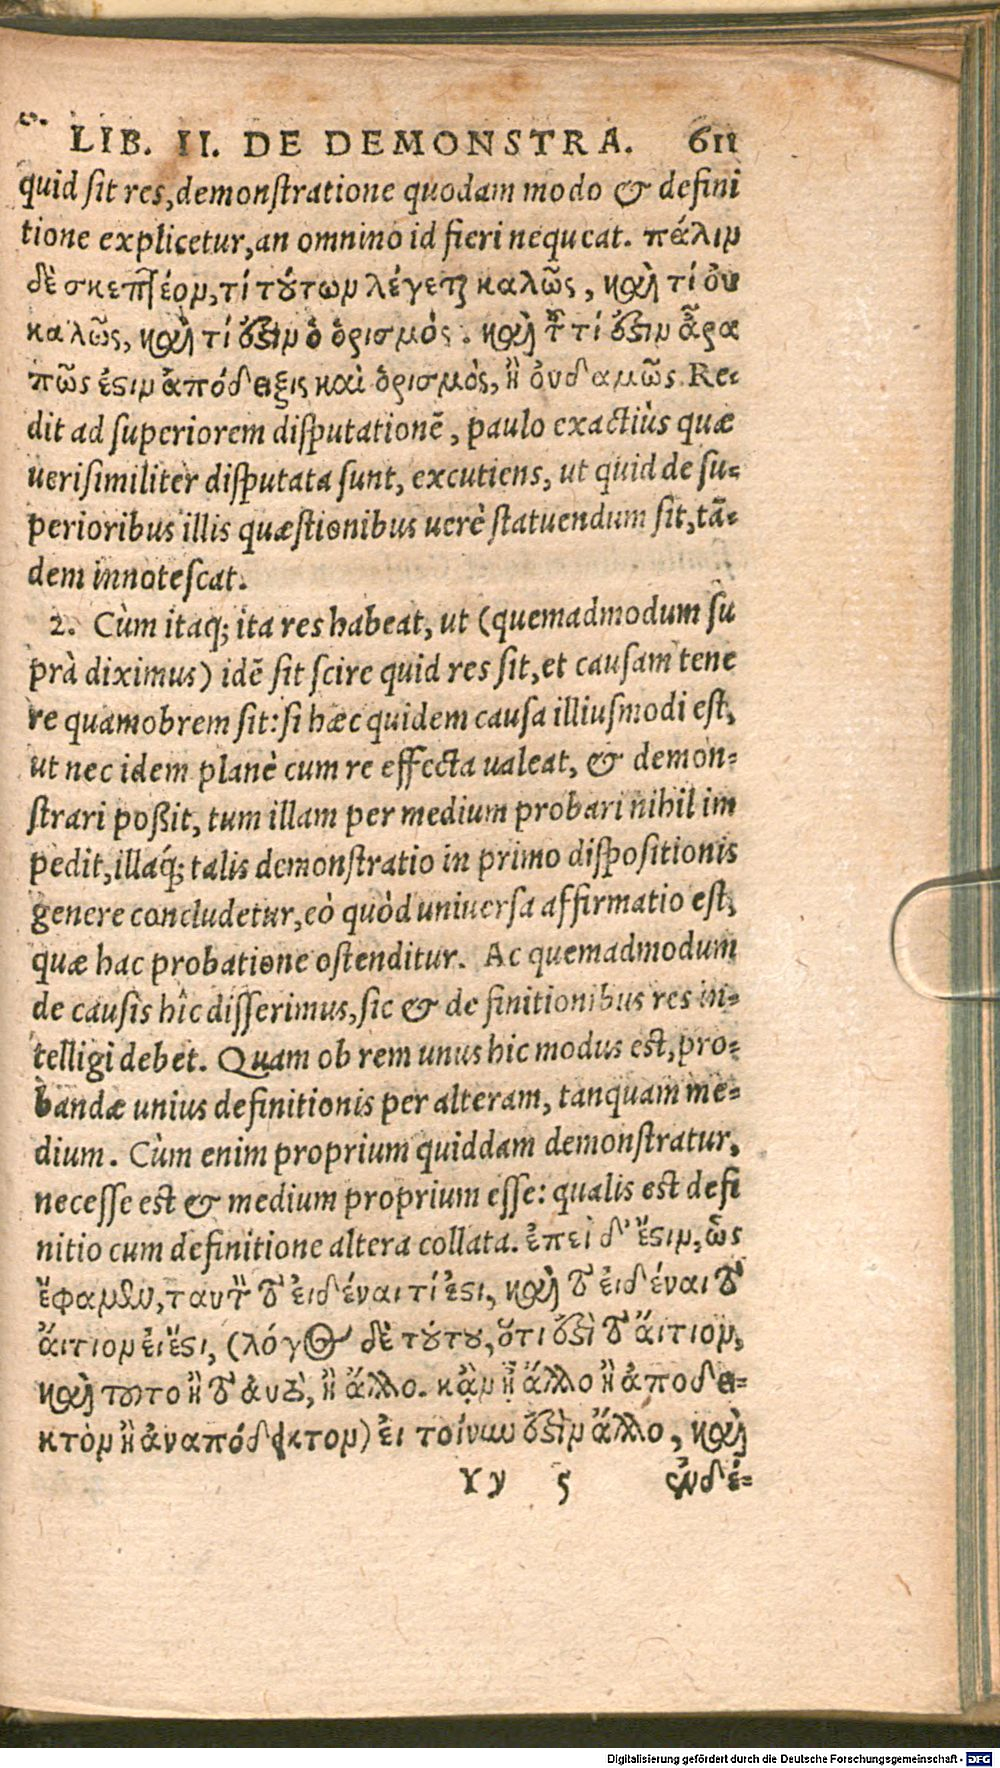 LIB. II. DE DEMONSTRA. 611
quid sit res, demonstratione quodam modo & defini
tione explicetur, an omnino id fieri nequeat. πάλιν
δὲ σκεπτέον, τί τούτων λέγεται καλῶς, καὶ τί οὐ
καλῶς, καὶ τί ἐστὶν ὁ ὁρισμός. καὶ τοῦ τί ἐστὶν ἆρα
πῶς ἐστιν ἀπόδειξις καὶ ὁρισμὸς, ἢ οὐδαμῶς. Re-
dit ad superiorem disputationē, paulo exactiùs quæ
uerisimiliter disputata sunt, excutiens, ut quid de su-
perioribus illis quæstionibus uerè statuendum sit, tā-
dem innotescat.
2. Cùm itaq; ita res habeat, ut (quemadmodum su
prà diximus) idē sit scire quid res sit, et causam tene
re quamobrem sit: si hæc quidem causa illiusmodi est,
ut nec idem planè cum re effecta ualeat, & demon-
strari poßit, tum illam per medium probari nihil im
pedit, illaq́; talis demonstratio in primo dispositionis
genere concludetur, eò quòd uniuersa affirmatio est,
quæ hac probatione ostenditur. Ac quemadmodum
de causis hîc disserimus, sic & de finitionibus res in-
telligi debet. Quam ob rem unus hic modus est, pro-
bandæ unius definitionis per alteram, tanquam me-
dium. Cùm enim proprium quiddam demonstratur,
necesse est & medium proprium esse: qualis est defi
nitio cum definitione altera collata. ἐπεὶ δ' ἔστιν, ὥς
ἔφαμεν, ταυτὸν τὸ εἰδέναι τί ἐστι, καὶ τὸ εἰδέναι τὸ
ἄιτιον εἰ ἔστι, (λόγος δὲ τούτου, ὅτι ἐστὶ τὸ ἄιτιον,
καὶ τοῦτο ἢ τὸ ἀυτὸ, ἢ ἄλλο. κἂν ᾖ ἄλλο ἢ ἀποδει-
κτὸν ἢ ἀναπόδεικτον) εἰ τοίνυν ἐστὶν ἄλλο, καὶ
Yy 5 ἐνδέ-
Digitalisierung gefördert durch die Deutsche Forschungsgemeinschaft - DFG